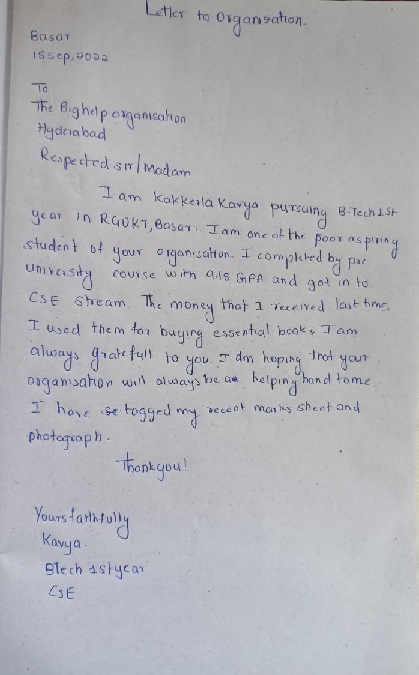 Letter to Organization.
Basar
15 Sep, 2022
To
The Bighelp organisation
Hyderabad
Respected sir/Madam
I am Kakkerla Kavya pursuing B-Tech 1st
year in RGUKT, Basar. I am one of the poor aspiring
student of your organisation. I completed by pre
university course with 9.18 GPA and got in to
CSE stream. The money that I received last time,
I used them for buying essential books. I am
always gratefull to you. I am hoping that your
organisation will always be a helping hand to me.
I have tagged my recent marks sheet and
photograph.
Thankyou!
Yours faithfully
Kavya.
Btech 1st year
CSE